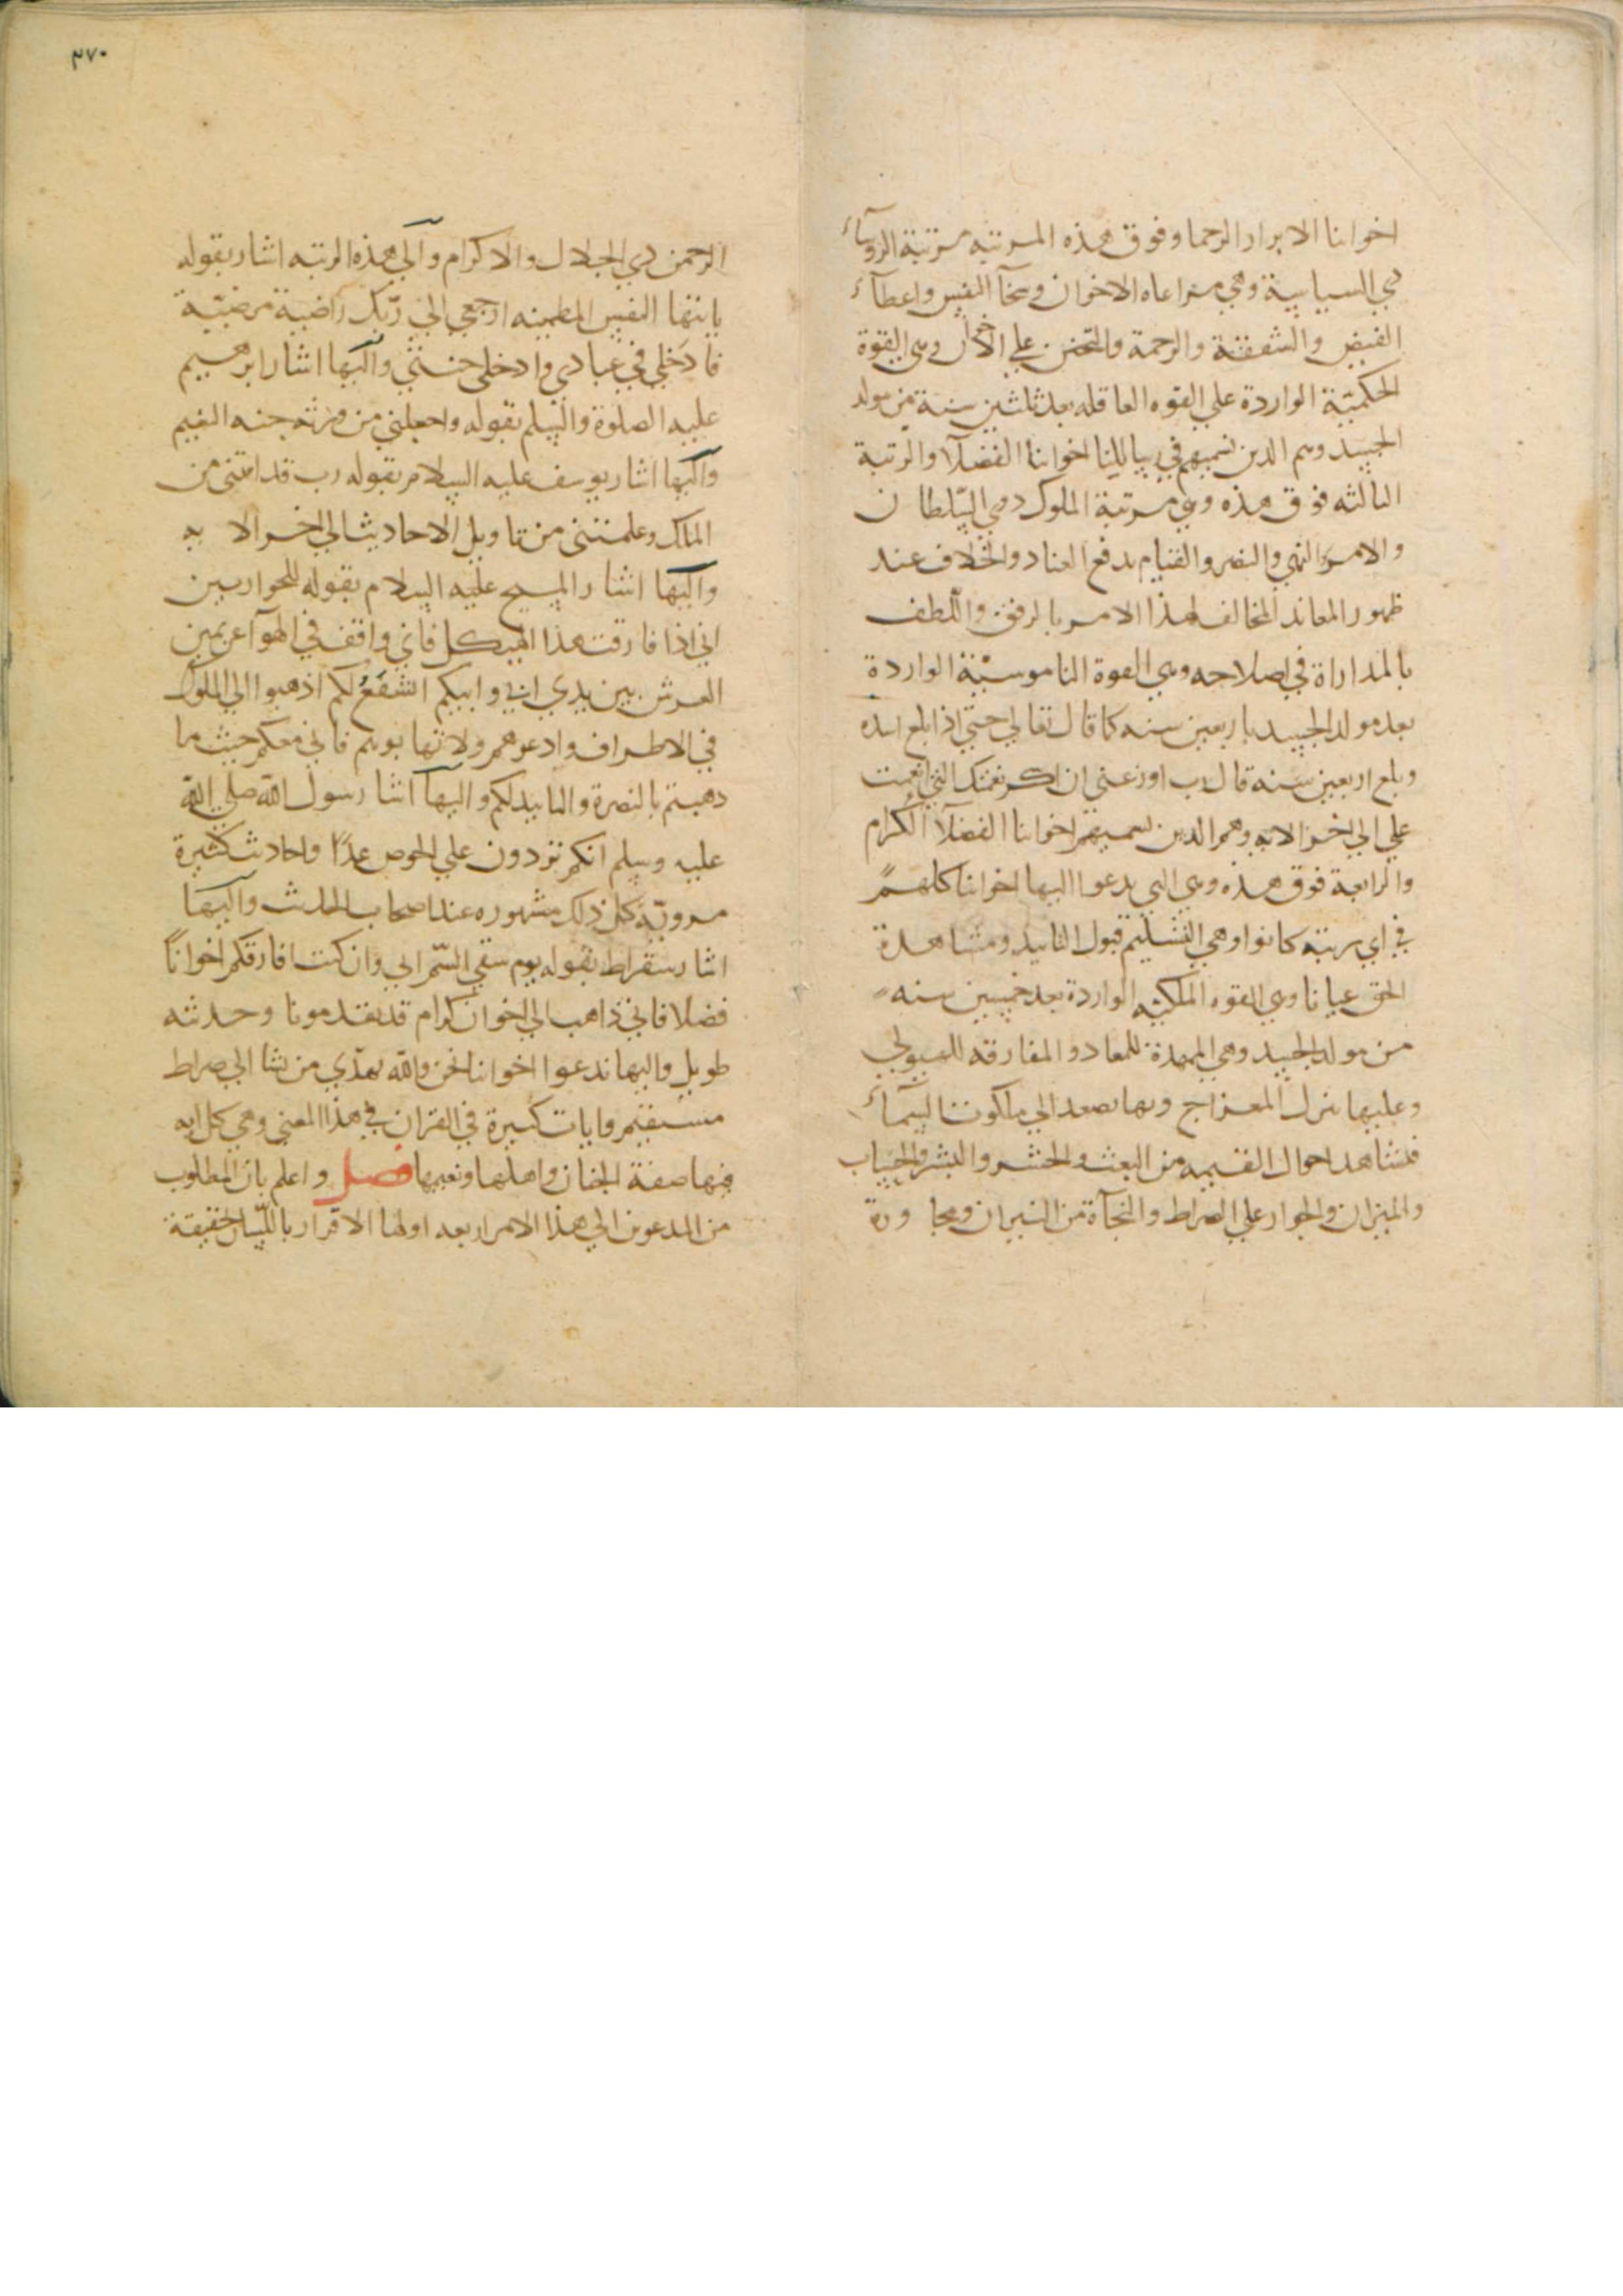 اخواننا الابرار الرحما وفوق هذه المرتبه مرتبة الروسآء
ذي السياسية وهي مراعاه الاخوان وسخآ النفس واعطآء
الفيض والشفقة والرحمة والتحنن علي الاخوان وهي القوة
الحكميّة الواردة علي القوه العاقله بعد ثلثين سنة من مولد
الجسد وهم الدين نسميهم في رسايلنا اخواننا الفضلآ والرتبة
الثالثه فوق هذه وهي مرتبة الملوك ذوي السّلطان
والامر والنهي والنصر والقيام بدفع العناد والخلاف عند
ظهور المعاند المخالف لهذا الامر بالرفق واللطف
بالمداراة في اصلاحه وهي القوة الناموسيّة الواردة
بعد مولد الجسد باربعين سنه كما قال تعالي حتي اذا بلغ اشده
وبلغ اربعين سنه قال رب اوزعني ان اشكر نعمتك التي انعمت
علي الي اخر الايه وهم الدين نسميهم اخواننا الفضلآ الكرام
والرابعة فوق هذه وهي التي يدعوا اليها اخواننا كلهم
في اي مرتبة كانوا وهي التسليم قبول التاييد ومشاهدة
الحق عيانا وهي القوه الملكيّه الواردة بعد خمسين سنه
من مولد الجسد وهي الممهدة للمعاد والمفارقه للهيولي
وعليها ينزل المعراج وبها يصعد الي ملكوت السمآء
فتشاهد احوال القيمه من البعث والحشر والنشر والحساب
والميزان والجواز علي الصراط والنجآة من النيران ومجاورة
٣٧٠
الرحمن ذي الجلال والاكرام والي هذه الرتبه اشار بقوله
يايتها النفس المطمئنه ارجعي الي ربّك راضية مرضيّة
فادخلي في عبادي وادخلي جنتي واليها اشار ابرهيم
عليه الصلوة والسلم بقوله واجعلني من ورثه جنه النعيم
واليها اشار يوسف عليه السلام بقوله رب قد اتيتني من
الملك وعلمتني من تاويل الاحاديث الي اخر الايه
واليها اشار المسيح عليه السلام بقوله للحواريين
اني اذا فارقت هذا الهيكل فاني واقف في الهوآ عن يمين
العرش بين يدي ابي وابيكم اتشفع لكم اذهبوا الي الملوك
في الاطراف وادعوهم ولا تهابوهم فاني معكم حيث ما
ذهبتم بالنصرة والتاييد لكم واليها اشا رسول الله صلي الله
عليه وسلم انكم تردون علي الحوض غدًا واحاديث كثيرة
مرويّة كل ذلك مشهوره عند اصحاب الحديث واليها
اشار سقراط بقوله يوم سقي السّم اني وان كنت افارقكم اخوانًا
فضلا فاني ذاهب الي اخوان كرام قد تقدمونا وحديثه
طويل واليها ندعوا اخواننا نحن والله يهدي من يشا الي صراط
مستقيم وايات كثيرة في القران في هذا المعني وهي كل ايه
فيها صفة الجنان واهلها ونعيمها فصل واعلم بان المطلوب
من المدعوين الي هذا الامر اربعه اولها الاقرار باللّسان حقيقة